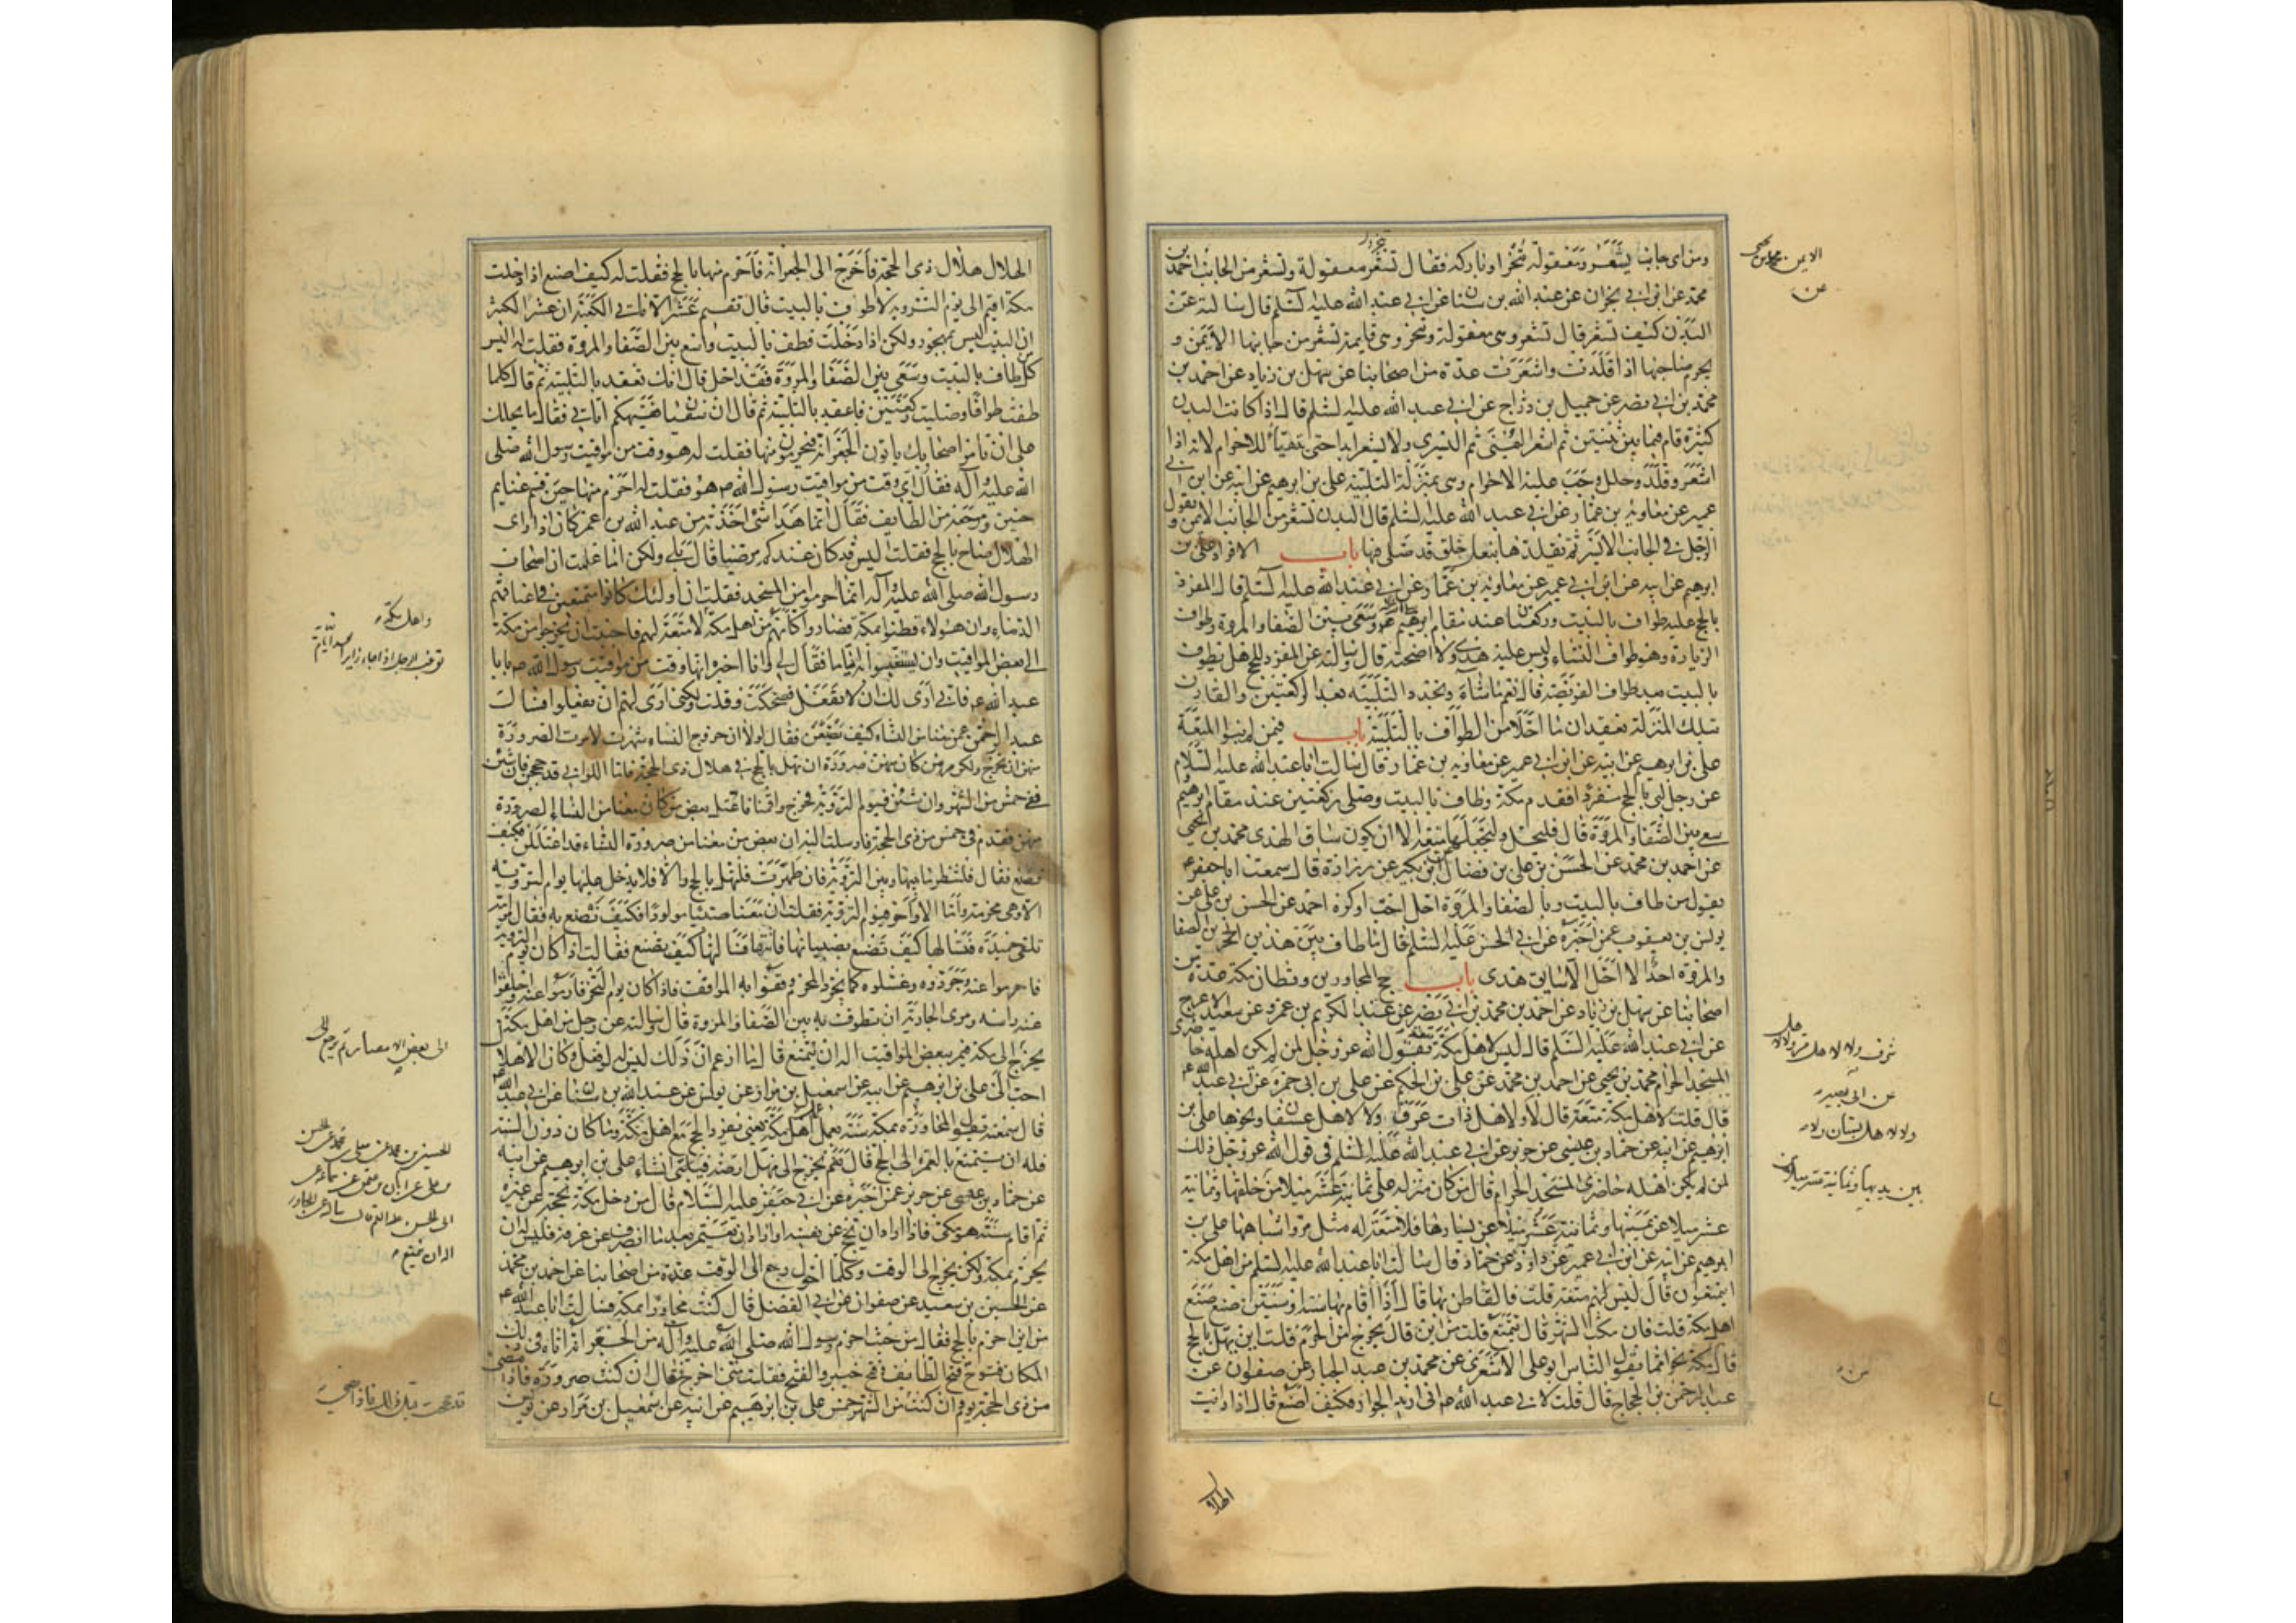 ومن اى جانب يشعر ومعقولة تنحر او باركة فقال تشعر معقولة وتشعر من الجانب
محمد عن ابن ابى نجران عن عبد الله بن سنان عن ابى عبد الله عليه السلم قال سالته عن
البدن كيف تشعر قال تشعر وهى معقولة وتنحر وهى قايمة تشعر من جانبها الايمن و
يحرم صاحبها اذا قلدت واشعرت عدة من اصحابنا عن سهل بن زياد عن احمد بن
محمد بن ابى نصر عن جميل بن دراج عن ابى عبد الله عليه السلم قال اذا كانت البدن
كثيرة قام فيما بين ثنتين ثم اشعر اليمنى ثم اليسرى ولا يشعر ابدا حتى يتهيأ للاحرام لانه اذا
اشعر وقلد وجلل وجب عليه الاحرام وهى بمنزلة التلبية على بن ابرهيم عن ابيه عن ابن ابى
عمير عن معاوية بن عمار عن ابى عبد الله عليه السلم قال البدن تشعر من الجانب الايمن ويقوم
الرجل فى الجانب الايسر ثم يقلدها بنعل خلق قد صلى فيها باب الافراد على بن
ابرهيم عن ابيه عن ابن ابى عمير عن معاوية بن عمار عن ابى عبد الله عليه السلم قال المفرد
بالحج عليه طواف بالبيت وركعتان عند مقام ابرهيم وسعى بين الصفا والمروة وطواف
الزيارة وهو طواف النساء وليس عليه هدى ولا اضحية قال وسالته عن المفرد للحج هل يطوف
بالبيت بعد طواف الفريضة قال نعم ما شاء ويجدد التلبية بعد الركعتين والقارن
بتلك المنزلة يعقدان ما احلا من الطواف بالتلبية باب فيمن لم ينو المتعة
على بن ابرهيم عن ابيه عن ابن ابى عمير عن معاوية بن عمار قال سالت ابا عبد الله عليه السلام
عن رجل لبى بالحج مفردا فقدم مكة وطاف بالبيت وصلى ركعتين عند مقام ابرهيم
سعى بين الصفا والمروة قال فليحل وليجعلها متعة الا ان يكون ساق الهدى محمد بن يحيى
عن احمد بن محمد عن الحسن بن على بن فضال عن ابن بكير عن زرارة قال سمعت ابا جعفر ع
يقول من طاف بالبيت وبالصفا والمروة احل احب او كره احمد عن الحسن بن على عن
يونس بن يعقوب عمن اخبره عن ابى الحسن عليه السلم قال ما طاف بين هذين الحجرين الصفا
والمروة احد الا احل الا سايق هدى باب حج المجاورين وقطان مكة عدة من
اصحابنا عن سهل بن زياد عن احمد بن محمد بن ابى نصر عن عبد الكريم بن عمرو عن سعيد الاعرج
عن ابى عبد الله عليه السلم قال ليس لاهل مكة متعة لقول الله عز وجل لمن لم يكن اهله حاضرى
المسجد الحرام محمد بن يحيى عن احمد بن محمد عن على بن الحكم عن على بن ابى حمزة عن ابى عبد الله ع
قال قلت لاهل مكة متعة قال لا ولا لاهل ذات عرق ولا لاهل عسفان ونحوها على بن
ابرهيم عن ابيه عن حماد بن عيسى عن حريز عن ابى عبد الله عليه السلم فى قول الله عز وجل ذلك
لمن لم يكن اهله حاضرى المسجد الحرام قال من كان منزله على ثمانية عشر ميلا من خلفها وثمانية
عشر ميلا عن يمينها وثمانية عشر ميلا عن يسارها فلا متعة له مثل مر واشباهها على بن
ابرهيم عن ابيه عن ابن ابى عمير عن داود عن حماد قال سالت ابا عبد الله عليه السلم من اهل مكة
ايتمتعون قال ليس لهم متعة قلت فالقاطن بها قال اذا اقام بها سنة او سنتين صنع صنع
اهل مكة قلت فان مكث الشهر قال يتمتع قلت من اين قال يخرج من الحرم قلت اين يهل بالحج
قال مكة نحوا مما يقول الناس ابو على الاشعرى عن محمد بن عبد الجبار عن صفوان عن
عبد الرحمن بن الحجاج قال قلت لابى عبد الله ع انى اريد الجوار فكيف اصنع قال اذا رايت
الايمن محمد بن يحيى
عن
عن ابى بصير
بين يديها وثمانية عشر ميلا
من
الهلال
الهلال هلال ذى الحجة فاخرج الى الجعرانة فاحرم منها بالحج فقلت له كيف اصنع اذا دخلت
مكة اقيم الى يوم التروية لا اطوف بالبيت قال تقيم عشرا لا تاتى الكعبة ان عشرا لكثير
ان البيت ليس بمهجور ولكن اذا دخلت فطف بالبيت واسع بين الصفا والمروة فقلت له اليس
كل من طاف بالبيت وسعى بين الصفا والمروة فقد احل قال انك تعقد بالتلبية ثم قال كلما
طفت طوافا وصليت ركعتين فاعقد بالتلبية ثم قال ان سفيان فقيهكم اتانى فقال ما يحملك
على ان تامر اصحابك ياتون الجعرانة فيحرمون منها فقلت له هو وقت من مواقيت رسول الله صلى
الله عليه وآله فقال اى وقت من مواقيت رسول الله ص هو فقلت له احرم منها حين قسم غنايم
حنين ومرجعه من الطايف فقال انما هذا شئ اخذته من عبد الله بن عمر كان اذا راى
الهلال صاح بالحج فقلت اليس قد كان عندكم مرضيا قال بلى ولكن اما علمت ان اصحاب
رسول الله صلى الله عليه وآله انما احرموا من المسجد فقلت ان اولئك كانوا متمتعين فى اعناقهم
الدماء وان هؤلاء قطنوا مكة فصاروا كانهم من اهل مكة لا متعة لهم فاحببت ان يخرجوا من مكة
الى بعض المواقيت وان يستغبوا به اياما فقال لى وانا اخبره انها وقت من مواقيت رسول الله ص يا با
عبد الله ع فانى ارى لك ان لا تفعل فضحكت وقلت ولكنى ارى لهم ان يفعلوا فسالت
عبد الرحمن عمن معنا من النساء كيف يصنعن فقال لولا ان خروج النساء شهرة لامرت الصرورة
منهن ان تخرج ولكن مر من كان منهن صرورة ان تهل بالحج فى هلال ذى الحجة فاما اللواتى قد حججن فان شئن
ففى خمس من الشهر وان شئن فيوم التروية فخرج واقمنا فاعتل بعض من كان معنا من النساء الصرورة
منهن فقدم فى خمس من ذى الحجة فارسلت اليه ان بعض من معنا من صرورة النساء قد اعتللن فكيف
تصنع فقال فلتنظر ما بينها وبين التروية فان طهرت فلتهل بالحج والا فلا يدخل عليها يوم التروية
الا وهى محرمة واما الاواخر فيوم التروية فقلت ان معنا صبيا مولودا فكيف نصنع به فقال مر امه
تلقى حميدة فتسالها كيف تصنع بصبيانها فاتتها فسالتها كيف تصنع فقالت اذا كان يوم التروية
فاحرموا عنه وجردوه وغسلوه كما يجرد المحرم وقفوا به المواقف فاذا كان يوم النحر فارموا عنه واحلقوا
عنه راسه ومرى الجارية ان تطوف به بين الصفا والمروة قال وسالته عن رجل من اهل مكة
يخرج الى مكة فيمر ببعض المواقيت اله ان يتمتع قال ما ازعم ان ذلك ليس له لو فعل وكان الاهلال
احب الى على بن ابرهيم عن ابيه عن اسمعيل بن مرار عن يونس عن عبد الله بن سنان عن ابى عبد الله ع
قال سمعته يقول المجاور بمكة سنة يعمل عمل اهل مكة يعنى يفرد الحج مع اهل مكة وما كان دون السنة
فله ان يتمتع بالعمرة الى الحج قال نعم يخرج الى مهل ارضه فيلبى ان شاء على بن ابرهيم عن ابيه
عن حماد بن عيسى عن حريز عمن اخبره عن ابى جعفر عليه السلام قال من دخل مكة بحجة عن غيره
ثم اقام سنة هو مكى فاذا اراد ان يحج عن نفسه او اراد ان يعتمر بعد ما انصرف من عرفة فليس له ان
يحرم بمكة ولكن يخرج الى الوقت وكلما حول رجع الى الوقت عدة من اصحابنا عن احمد بن محمد
عن الحسين بن سعيد عن صفوان عن ابى الفضل قال كنت مجاورا بمكة فسالت ابا عبد الله ع
من اين احرم بالحج فقال من حيث احرم رسول الله صلى الله عليه وآله من الجعرانة اتاه فى ذلك
المكان فتوح فتح الطايف فتح خيبر والفتح فقلت متى اخرج فقال ان كنت صرورة فاذا مضى
من ذى الحجة يوم وان كنت من الشهر خمس على بن ابرهيم عن ابيه عن اسمعيل بن مرار عن يونس
واهل مكة
الى بعض الامصار ثم يرجع الى
له ان يتمتع
قد حججت قبل ذلك فاذا مضى